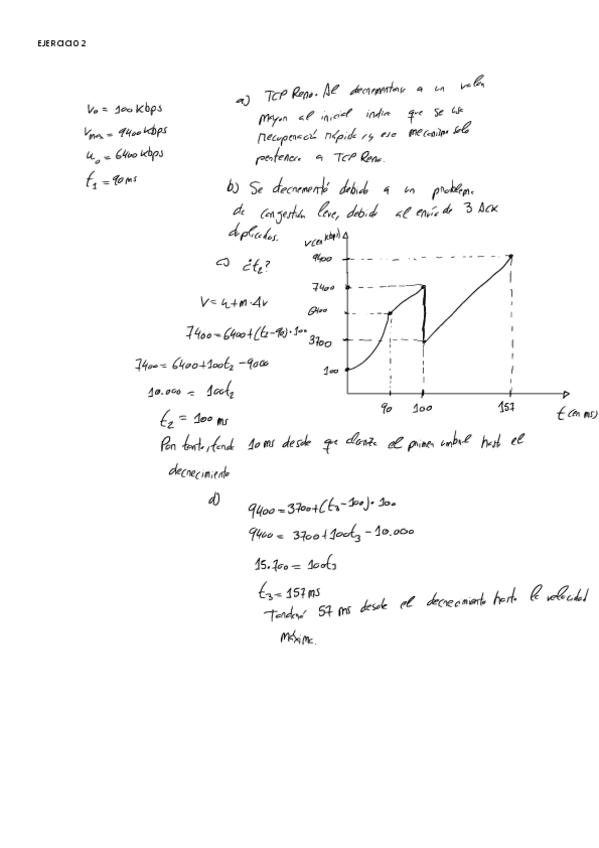 EJERCICIO 2
V₀ = 100 Kbps
Vmax = 9400 Kbps
u₀ = 6400 Kbps
t₁ = 90 ms
a) TCP Reno. Al decrementarse a un valor
mayor al inicial indica que se usa
recuperación rápida, y ese mecanismo solo
pertenece a TCP Reno.
b) Se decrementó debido a un problema
de congestión leve, debido al envío de 3 ACK
duplicados.
c) ¿t₂?
V = u + m · Δv
7400 = 6400 + (t₂ - 90) · 100
7400 = 6400 + 100t₂ - 9000
10.000 = 100t₂
t₂ = 100 ms
V (en Kbps)
9400
7400
6400
3700
100
90 100 157 t (en ms)
Por tanto, tarda 10 ms desde que alcanza el primer umbral hasta el
decrecimiento
d)
9400 = 3700 + (t₃ - 100) · 100
9400 = 3700 + 100t₃ - 10.000
15.700 = 100t₃
t₃ = 157 ms
Tardará 57 ms desde el decrecimiento hasta la velocidad
máxima.